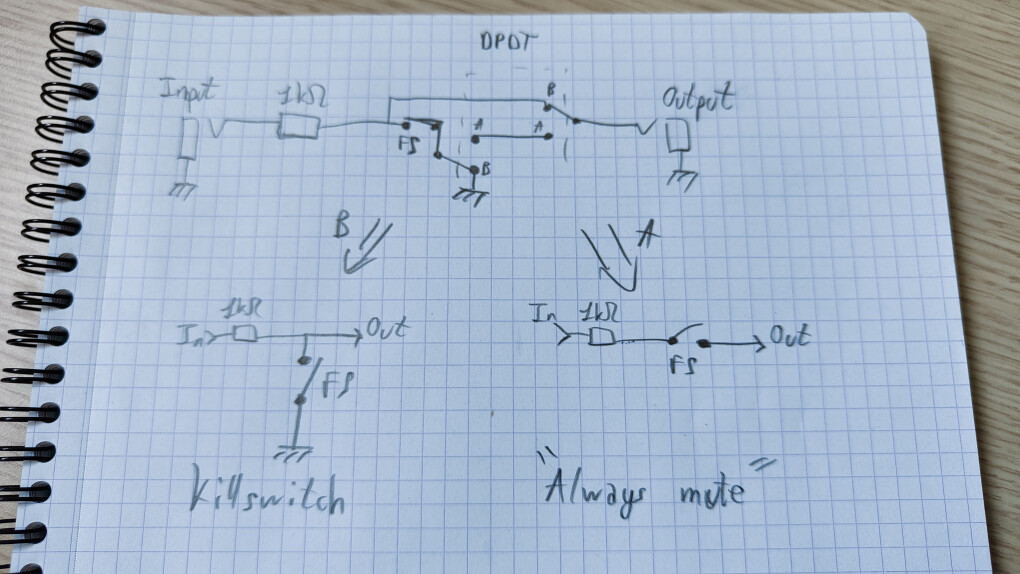 DPDT
Input 1kΩ B Output
A A
FS
B
B A
1kΩ
In Out
FS
Killswitch
1kΩ
In Out
FS
"Always mute"